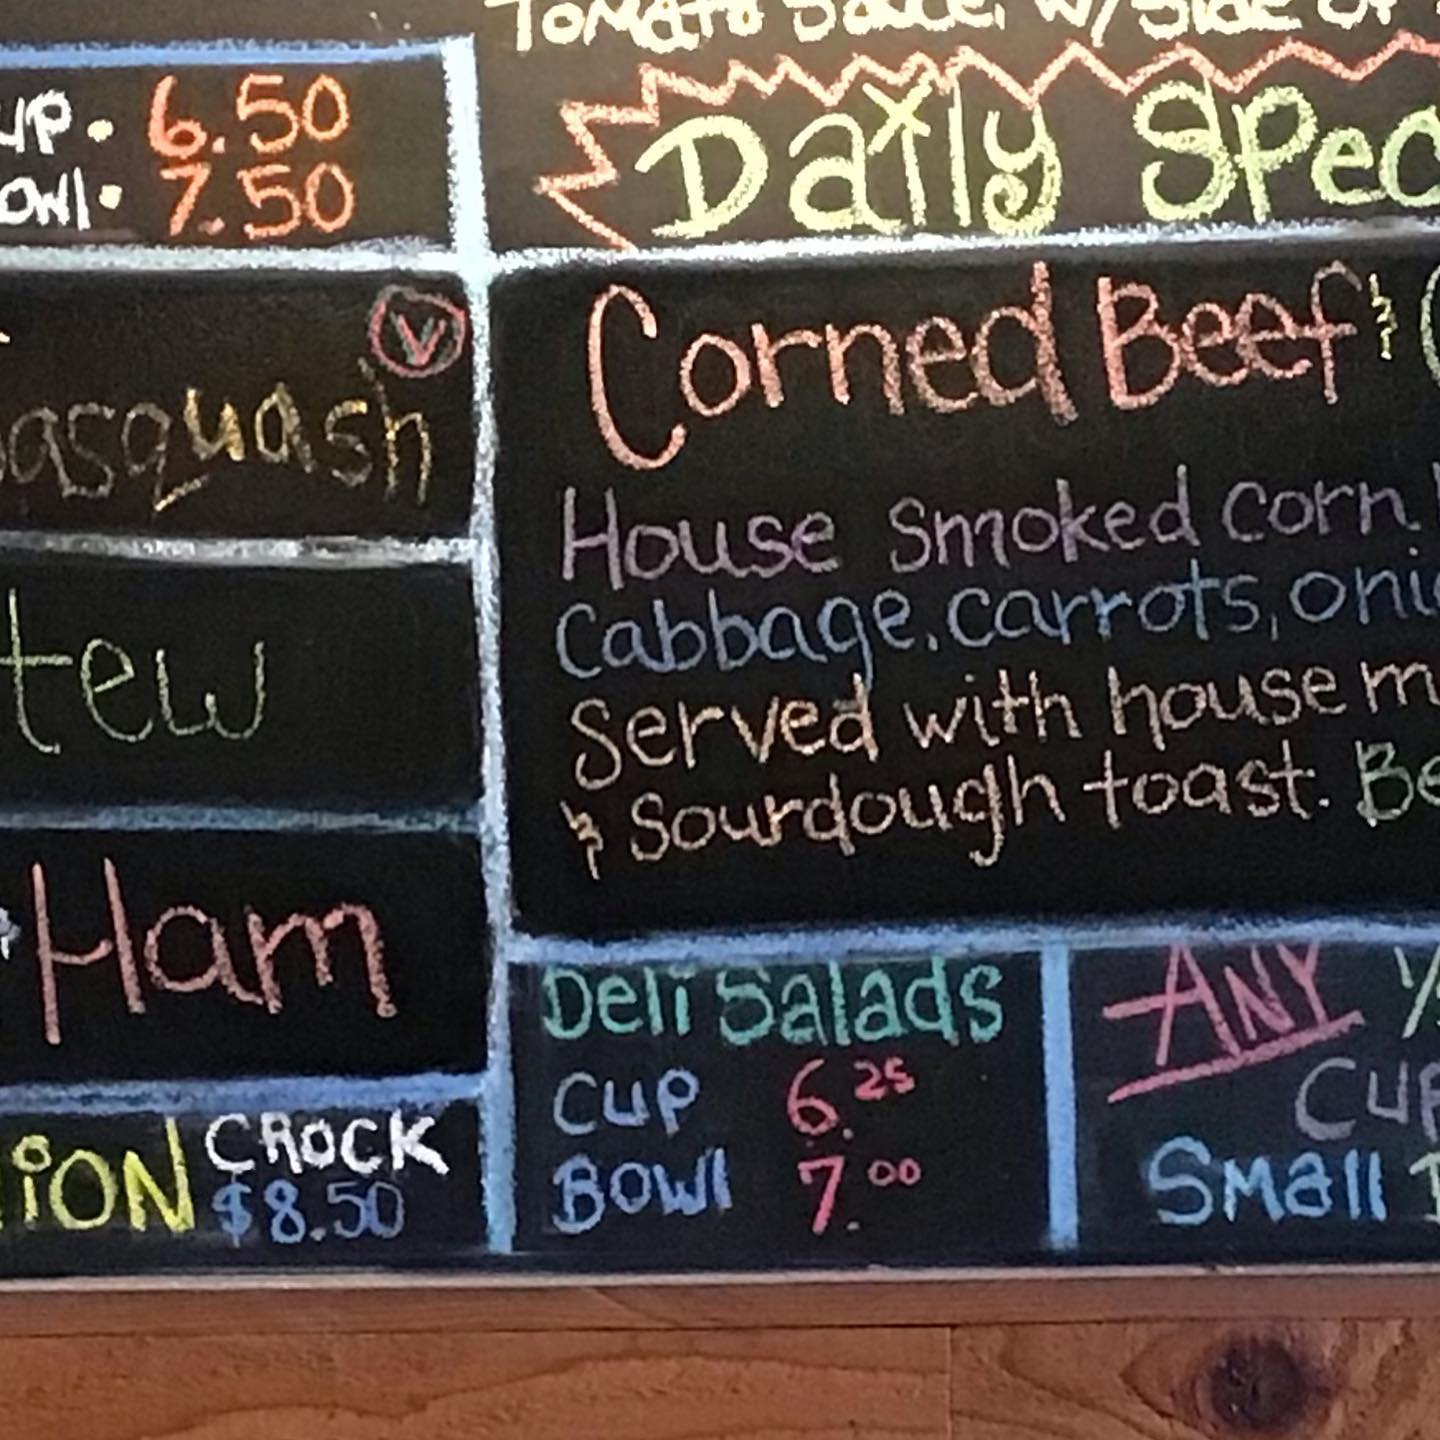 Tomato Sauce. w/side of
UP. 6.50
OWl. 7.50
Daily Spec
V
asquash
tew
Ham
ION CROCK
$8.50
Corned Beef &
House smoked corn
Cabbage, carrots, onio
Served with house m
& Sourdough toast. Be
Deli Salads
Cup 6.25
BOWl 7.00
ANY
Cup
Small